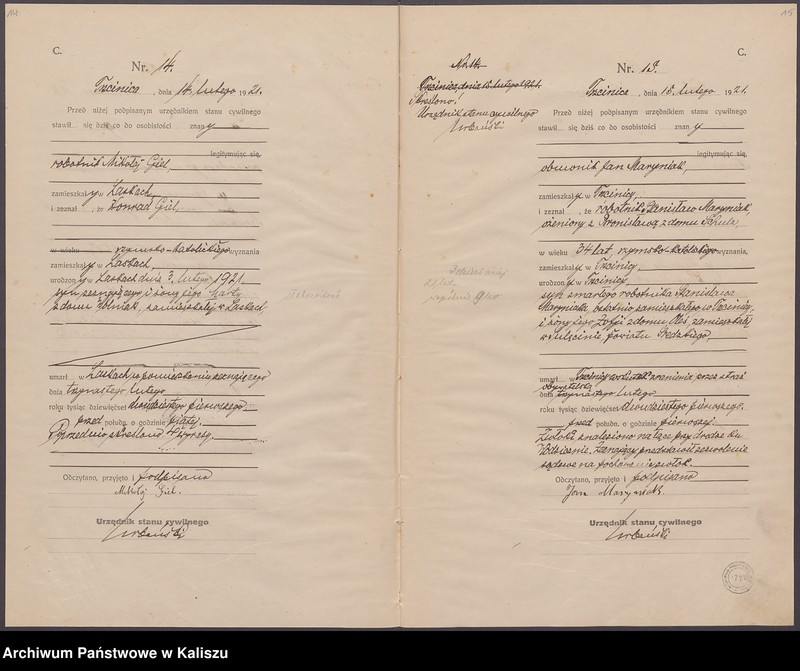 14
C.
Nr. 14.
Trzcinica, dnia 14. lutego 1921.
Przed niżej podpisanym urzędnikiem stanu cywilnego
stawił się dziś co do osobistości znany
legitymując się,
robotnik Mikołaj Giel,
zamieszkały w Laskach,
i zeznał, że Konrad Giel,
w wieku rzymsko-katolickiego wyznania
zamieszkały w Laskach,
urodzony w Laskach dnia 3. lutego 1921
syn zeznającego i żony jego
z domu zamieszkałej w Laskach
umarł w Laskach w pomieszkaniu zeznającego
dnia trzynastego lutego
roku tysiąc dziewięćset dwudziestego pierwszego
przed połudn. o godzinie piątej.
Poprzednio skreślono 4 wyrazy.
Odczytano, przyjęto i podpisano
Mikołaj Giel.
Urzędnik stanu cywilnego
Urbański
15
C.
No. 14
Trzcinica, dnia 15. lutego 1921.
Skreślono!
Urzędnik stanu cywilnego
Urbański
Nr. 15.
Trzcinica, dnia 15. lutego 1921.
Przed niżej podpisanym urzędnikiem stanu cywilnego
stawił się dziś co do osobistości znany
legitymując się,
Jan Maryniak,
zamieszkały w Trzcinicy,
i zeznał, że robotnik Stanisław Maryniak,
ożeniony z Bronisławą z domu
w wieku 34 lat rzymsko-katolickiego wyznania,
zamieszkały w Trzcinicy,
urodzony w Trzcinicy
syn zmarłego robotnika Stanisława
Maryniaka ostatnio zamieszkałego w Trzcinicy,
i żony jego Zofji z domu zamieszkałej
w powiatu
umarł w Trzcinicy wskutek zranienia przez straż
obywatelską
dnia trzynastego lutego
roku tysiąc dziewięćset dwudziestego pierwszego.
przed połudn. o godzinie pierwszej.
Zwłoki znaleziono na łące przy drodze ku
zeznający przedstawił zezwolenie
sądowe na pochowanie zwłok.
Odczytano, przyjęto i podpisano
Jan Maryniak
Urzędnik stanu cywilnego
Urbański
Archiwum Państwowe w Kaliszu